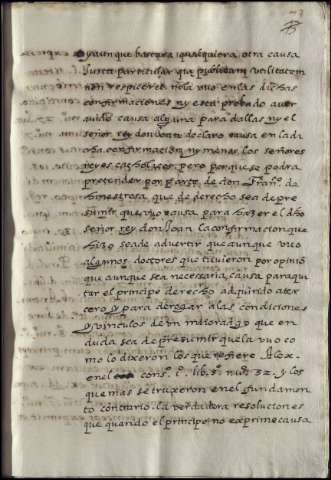 y aunque bastara qualquiera otra causa
Justa particular que publicam utilitatem
non respiceret no la uuo en las dichas
confirmaciones ny esta probado auer
auido causa alguna para dallas ny el
señor rey don Joan declaro causa en la di
cha confirmacion ny menos los señores
reyes catholicos, pero porque se podra
pretender por parte de don Fran.co da
hinestrosa, que de derecho sea de pre
sumir que uuo causa para hazer el dho
señor rey don Joan la confirmacion que
hizo sea de advertir que aunque uuo
algunos doctores que tuuieron por opinio
que aunque sea necessaria causa para qui
tar el principe derecho adquirido a ter
cero y para derogar a las condiciones
y vinculos de un maioradgo que en
duda sea de presumir que la uuo co
mo lo dixeron los que refiere
en el cons. 1. lib. 5. nu. 32. y los
que mas se truxeron en el fundamen
to contrario. la verdadera resolucion es
que quando el principe no exprime causa